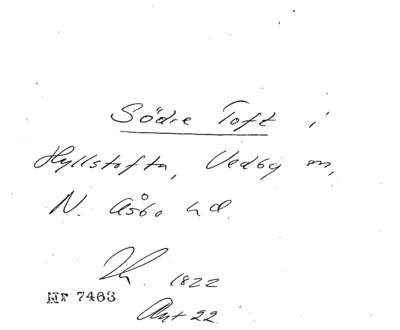 Södre Toft i
Hyllstofta, Vedby sn,
N. Åsbo hd.
1822
Nr 7463
Akt 22.